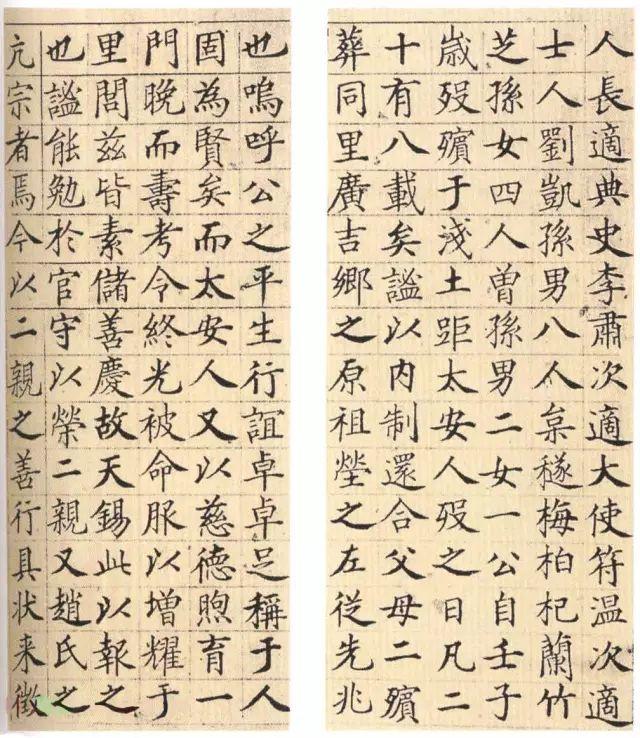 人長適典史李肅次適大使符溫次適
士人劉凱孫男八人枲穟梅柏杞蘭竹
芝孫女四人曾孫男二女一公自壬子
歳歿殯于淺土距太安人歿之日凡二
十有八載矣謐以内制還合父母二殯
葬同里廣吉鄉之原祖塋之左從先兆
也嗚呼公之平生行誼卓卓足稱于人
固為賢矣而太安人又以慈德煦育一
門晚而壽考令終光被命服以增耀于
里閭茲皆素儲善慶故天錫此以報之
也謐能勉於官守以榮二親又趙氏之
亢宗者焉今以二親之善行具狀來徵